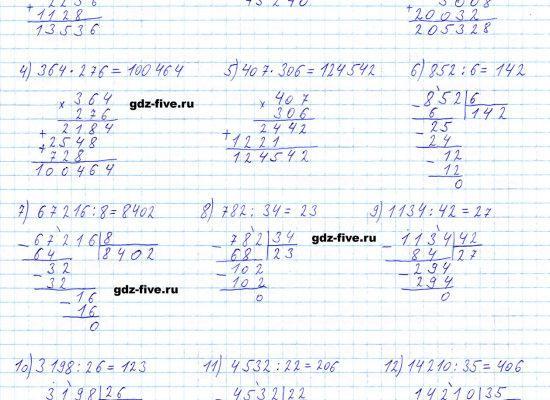 2256
+
1128
13536
45240
3008
+
20032
205328
4) 364 · 276 = 100464
× 364
276
2184
+
2548
+
728
100464
5) 407 · 306 = 124542
× 407
306
2442
+
1221
124542
6) 852 : 6 = 142
- 852 | 6
6 142
- 25
24
- 12
12
0
gdz-five.ru
7) 67216 : 8 = 8402
- 67216 | 8
64 8402
- 32
32
- 16
16
0
gdz-five.ru
8) 782 : 34 = 23
- 782 | 34
68 23
- 102
102
0
gdz-five.ru
9) 1134 : 42 = 27
- 1134 | 42
84 27
- 294
294
0
10) 3198 : 26 = 123
3198 | 26
11) 4532 : 22 = 206
- 4532 | 22
12) 14210 : 35 = 406
14210 | 35